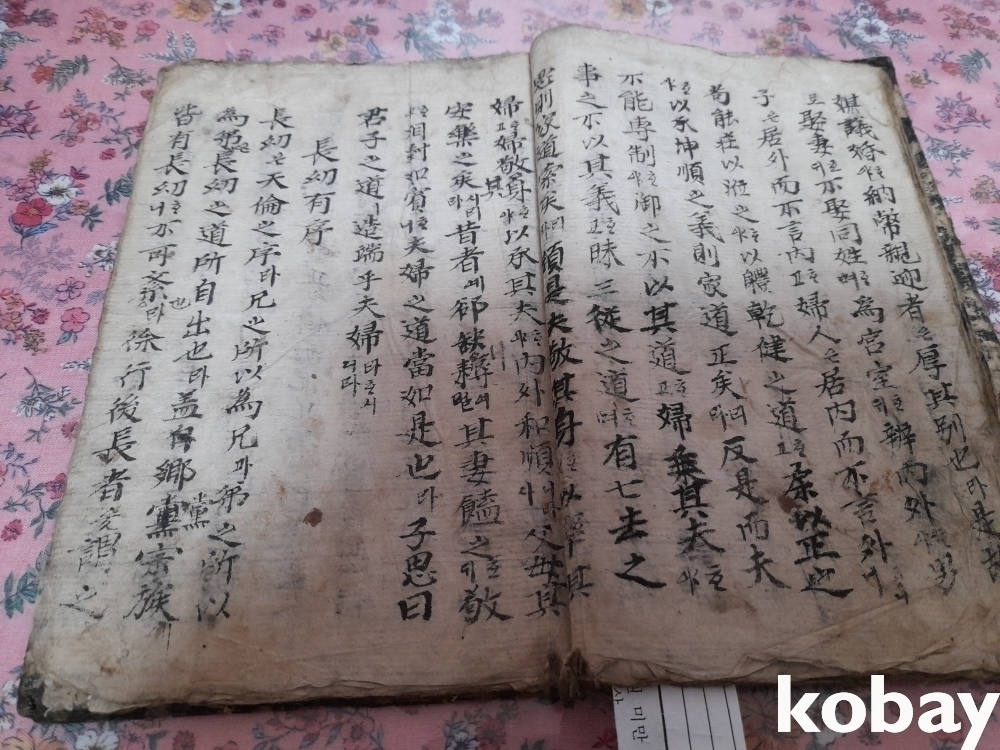 媒議婚ᄒᆞ야納幣親迎者ᄂᆞᆫ厚其別也라是故
로娶妻호ᄃᆡ不娶同姓ᄒᆞ며為宮室호ᄃᆡ辨內外ᄒᆞ야男
子ᄂᆞᆫ居外而不言內ᄒᆞ고婦人ᄂᆞᆫ居內而不言外
苟能莊以涖之ᄒᆞ야以軆乾健之道ᄒᆞ고柔以正之
ᄒᆞ야以承坤順之義則家道正矣어니와反是而夫
不能專制ᄒᆞ야御之不以其道ᄒᆞ고婦乘其夫ᄒᆞ야
事之不以其義ᄒᆞ고昧三從之道ᄒᆞ며有七去之
惡則家道索矣須是夫敬其身ᄒᆞ야以帥其
婦ᄒᆞ고婦敬其身ᄒᆞ야以承其夫ᄒᆞ야內外和順父母其
安樂之矣시리라昔者에郤缺耨에其妻饁之호ᄃᆡ敬
相對如賓ᄒᆞ니夫婦之道當如是也라子思曰
君子之道ㅣ造端乎夫婦라ᄒᆞ시니라
長幼有序
長幼ᄂᆞᆫ天倫之序라兄之所以為兄과弟之所以
為弟長幼之道所自出也라盖自鄉黨宗族
皆有長幼ᄒᆞ니不可紊也라徐行後長者謂之
미만
kobay